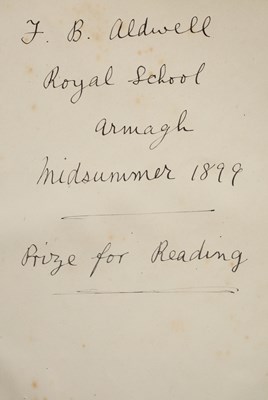 F. B. Aldwell
Royal School
Armagh
Midsummer 1899
Prize for Reading